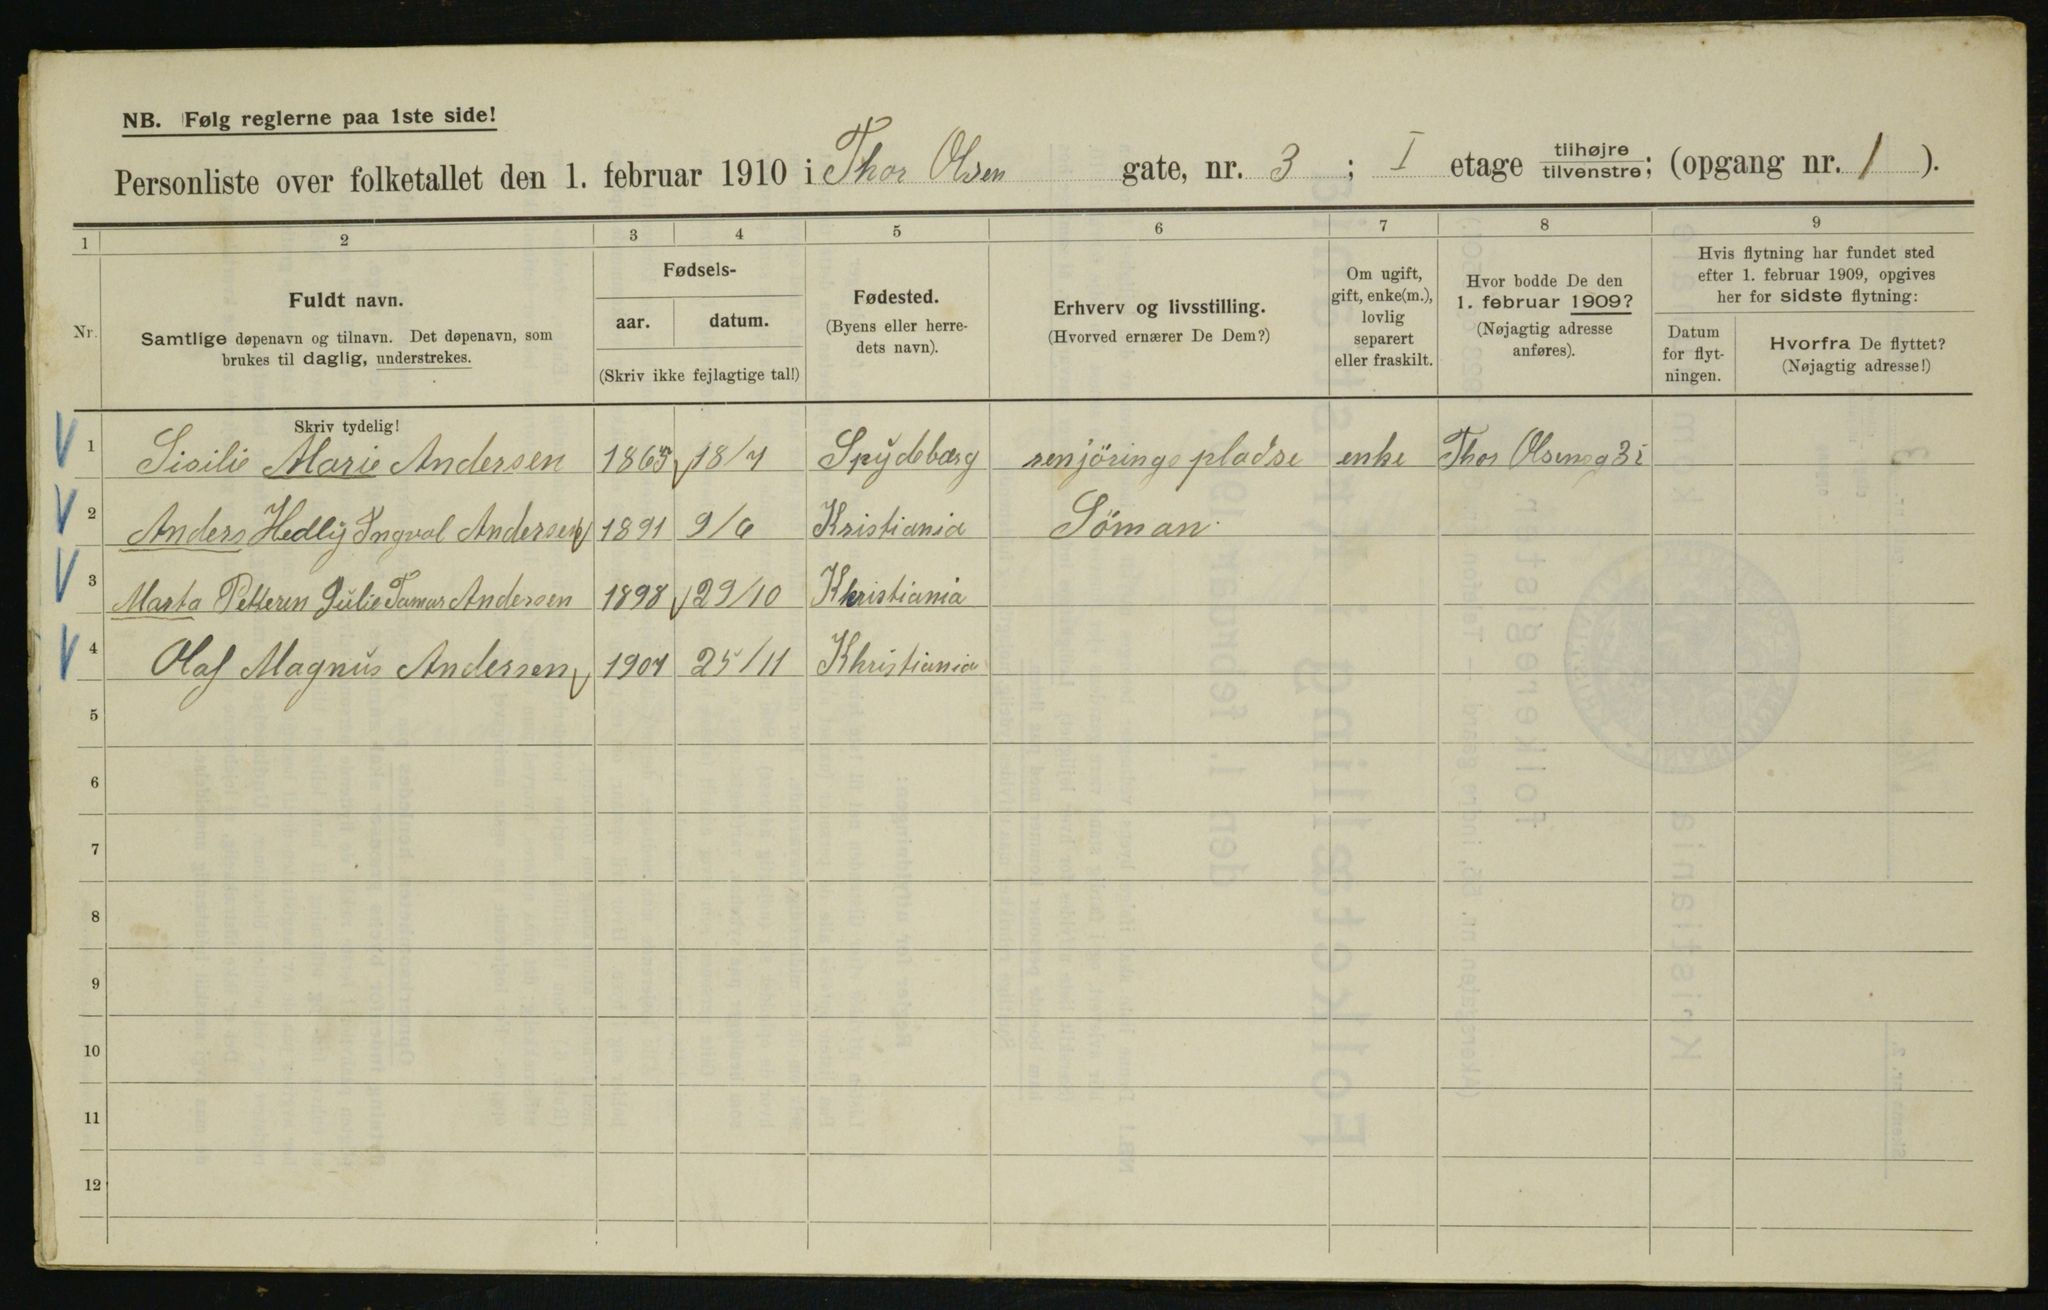 NB. Følg reglerne paa 1ste side!
Personliste over folketallet den 1. februar 1910 i Thor Olsen gate, nr. 3 ; I etage tilhøjre tilvenstre; (opgang nr. 1 ).
1 2 3 4 5 6 7 8 9
Nr.
Fuldt navn.
Samtlige døpenavn og tilnavn. Det døpenavn, som
brukes til daglig, understrekes.
Fødsels-
aar. datum.
(Skriv ikke fejlagtige tal!)
Fødested.
(Byens eller herre-
dets navn).
Erhverv og livsstilling.
(Hvorved ernærer De Dem?)
Om ugift,
gift, enke(m.),
lovlig
separert
eller fraskilt.
Hvor bodde De den
1. februar 1909?
(Nøjagtig adresse
anføres).
Hvis flytning har fundet sted
efter 1. februar 1909, opgives
her for sidste flytning:
Datum
for flyt-
ningen.
Hvorfra De flyttet?
(Nøjagtig adresse!)
Skriv tydelig!
1 Sisilie Marie Andersen 18/7 Spydebærg renjörings pladse enke Thor Olsensg 3 I
2 Anders Hedly Ingval Andersen 1891 9/6 Kristiania Söman
3 Marta Petteren Julie Tamar Andersen 1898 29/10 Khristiania
4 Olaf Magnus Andersen 1907 25/11 Khristiania
5
6
7
8
9
10
11
12